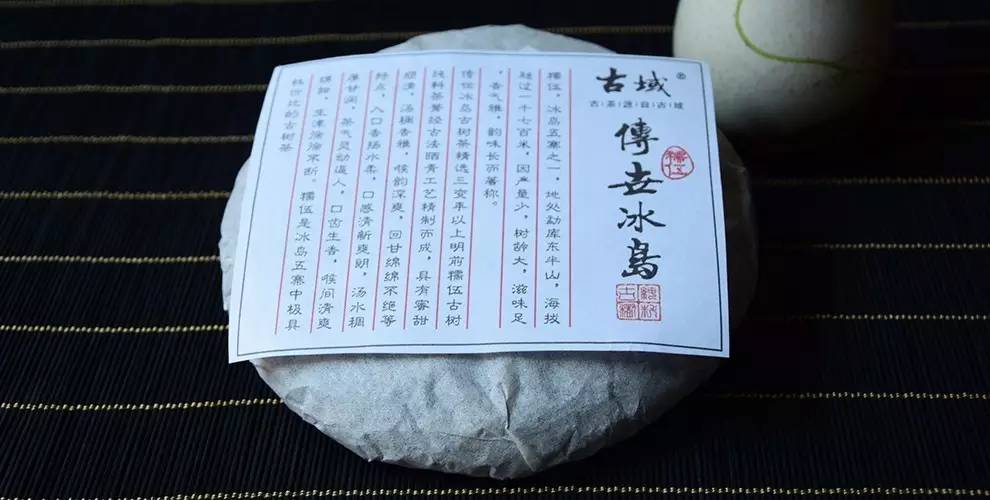 古域®
古茶源自古域
傳世冰島
糯伍
糯伍，冰岛五寨之一，地处勐库东半山，海拔
超过一千七百米，因产量少，树龄大，滋味足
，香气雅，韵味长而著称。
传世冰岛古树茶精选三变年以上明前糯伍古树
纯料茶箐经古法晒青工艺精制而成，具有蜜甜
顺滑，汤稠香雅，喉韵深爽，回甘绵绵不绝等
特点，入口香扬水柔，口感清新爽朗，汤水稠
厚甘润，茶气灵动逼人，口齿生香，喉间清爽
甜，生津徐徐不断。糯伍是冰岛五寨中极具
性价比的古树茶